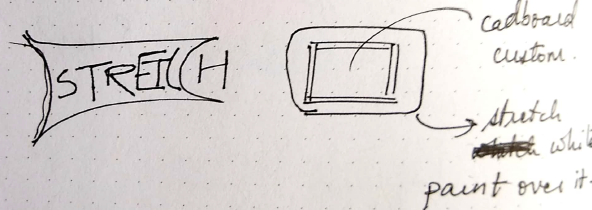 STRETCH
cadboard
custom.
stretch
while
paint over it.